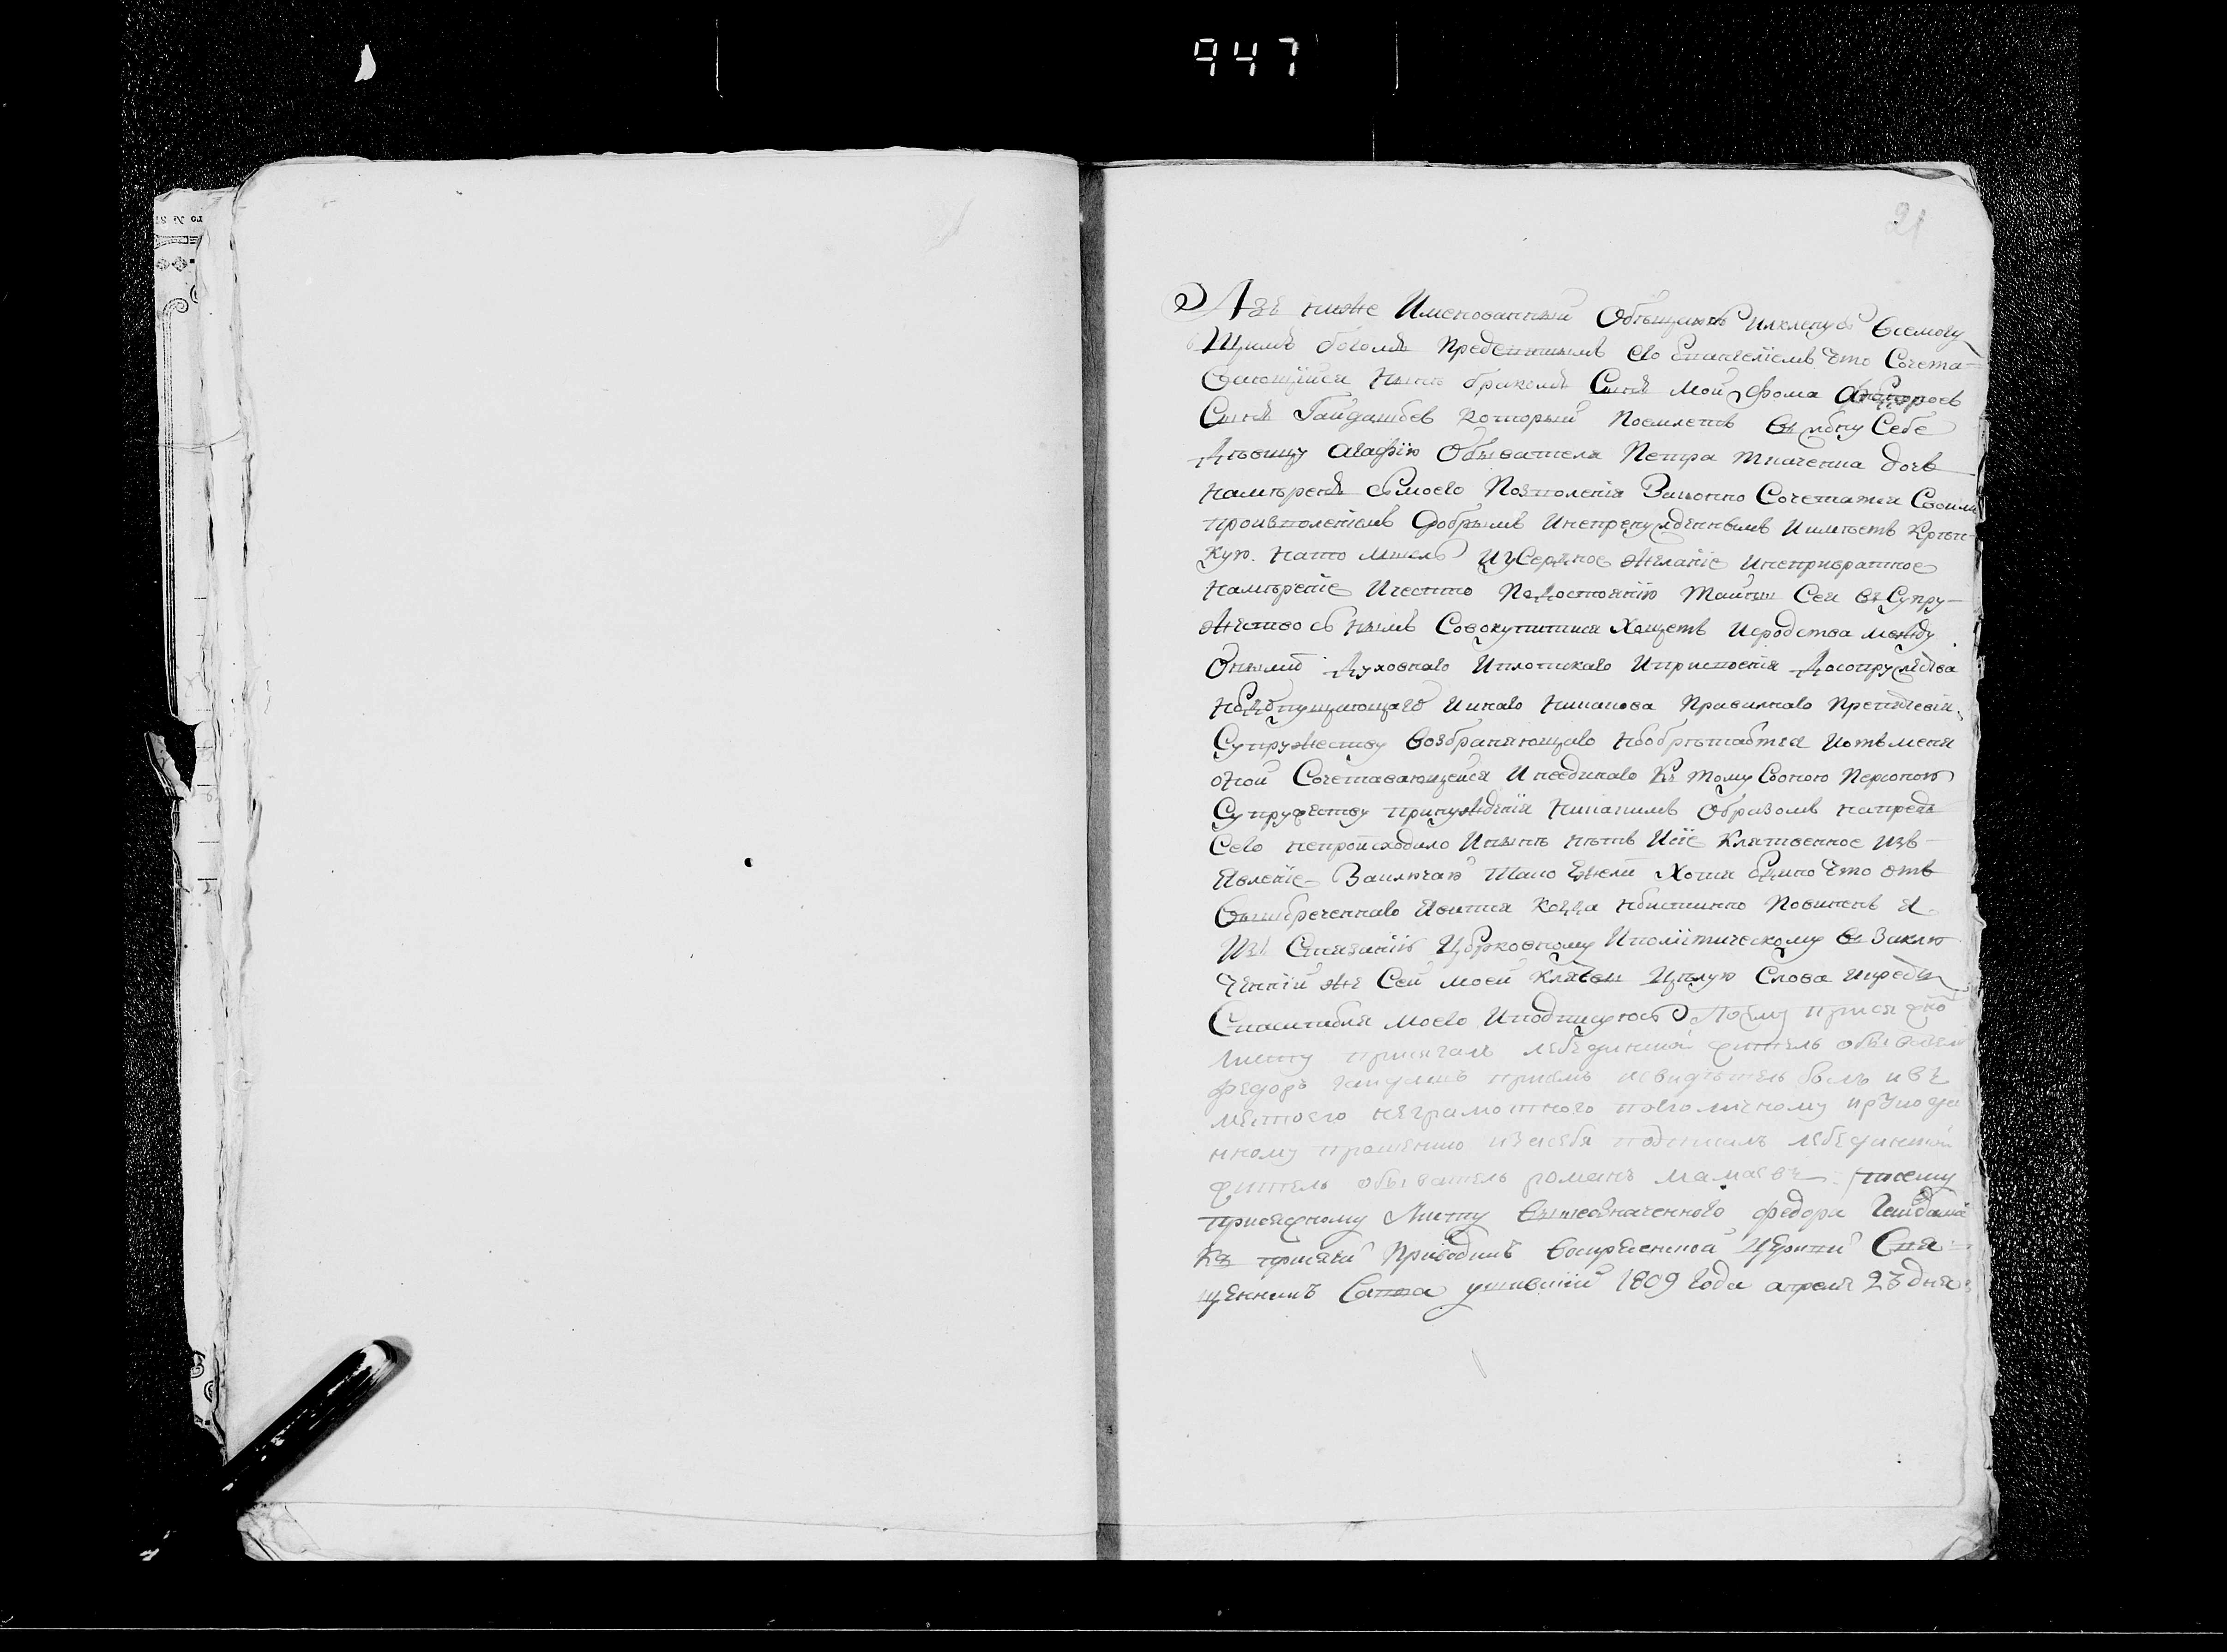 947
21
Азъ ниже Именованный Обѣщаюсь иклянусь Всемогу
Щимъ богомъ Предсвятымъ его Евангелïемъ что Сочета-
Вающïйся нынѣ бракомъ Сынъ мой Фома
Сынъ который Поемлетъ въ жену Себе
Дѣвицу Агафïю Обывателя Петра Ткаченка дочь
намѣренъ смоего Позволенïя Законно Сочетатся Своимъ
произволенïемъ добрымъ Инепренужденнымъ Иимѣетъ Крѣп-
кую. нато мысль Иусердное желанïе Инепривратное
намѣренïе Ичестно Подостоянïю тайны Сея въ Супру-
жество съ нымъ Совокупитися Хощетъ Исродства между
Оными Духовнаго Иплотскаго Иприсвоенïя Досопружества
недопущающаго Иинаго никакова Правилнаго Препядсвïя
Супружеству возбраняющаго необрѣтается Иотъ меня
оной Сочетавающейся Инеединаго Къ тому Своною Персоною
Супружеству принужденïя никакимъ Образомъ напредъ
Сего непроисходило Инынѣ нѣтъ Исïе Клятвенное изъ-
Явленïе Заключаю тако Ежели Хотя едино что отъ
Вышереченнаго Явится Когда неистинно Повиненъ я
Церковному Иполïтическому въ Заклю
ченïи же Сей моей клятвы Цѣлую Слова икрестъ
Спасителя моего Иподписуюсь По сему присяжно
листу присягалъ лебединской житель обыватель
федоръ исвидѣтель былъ ивъ
место его неграмотного поеголичному ирукода
нному прошению изасебя подписалъ лебединской
житель обыватель романъ мамаевъ. посему
присяжному Листу вышеозначенного федора Гайдаша
Къ присяги Приводилъ воскресенской Церкви Свя-
щенникъ Савва 1809 года апреля 23 дня